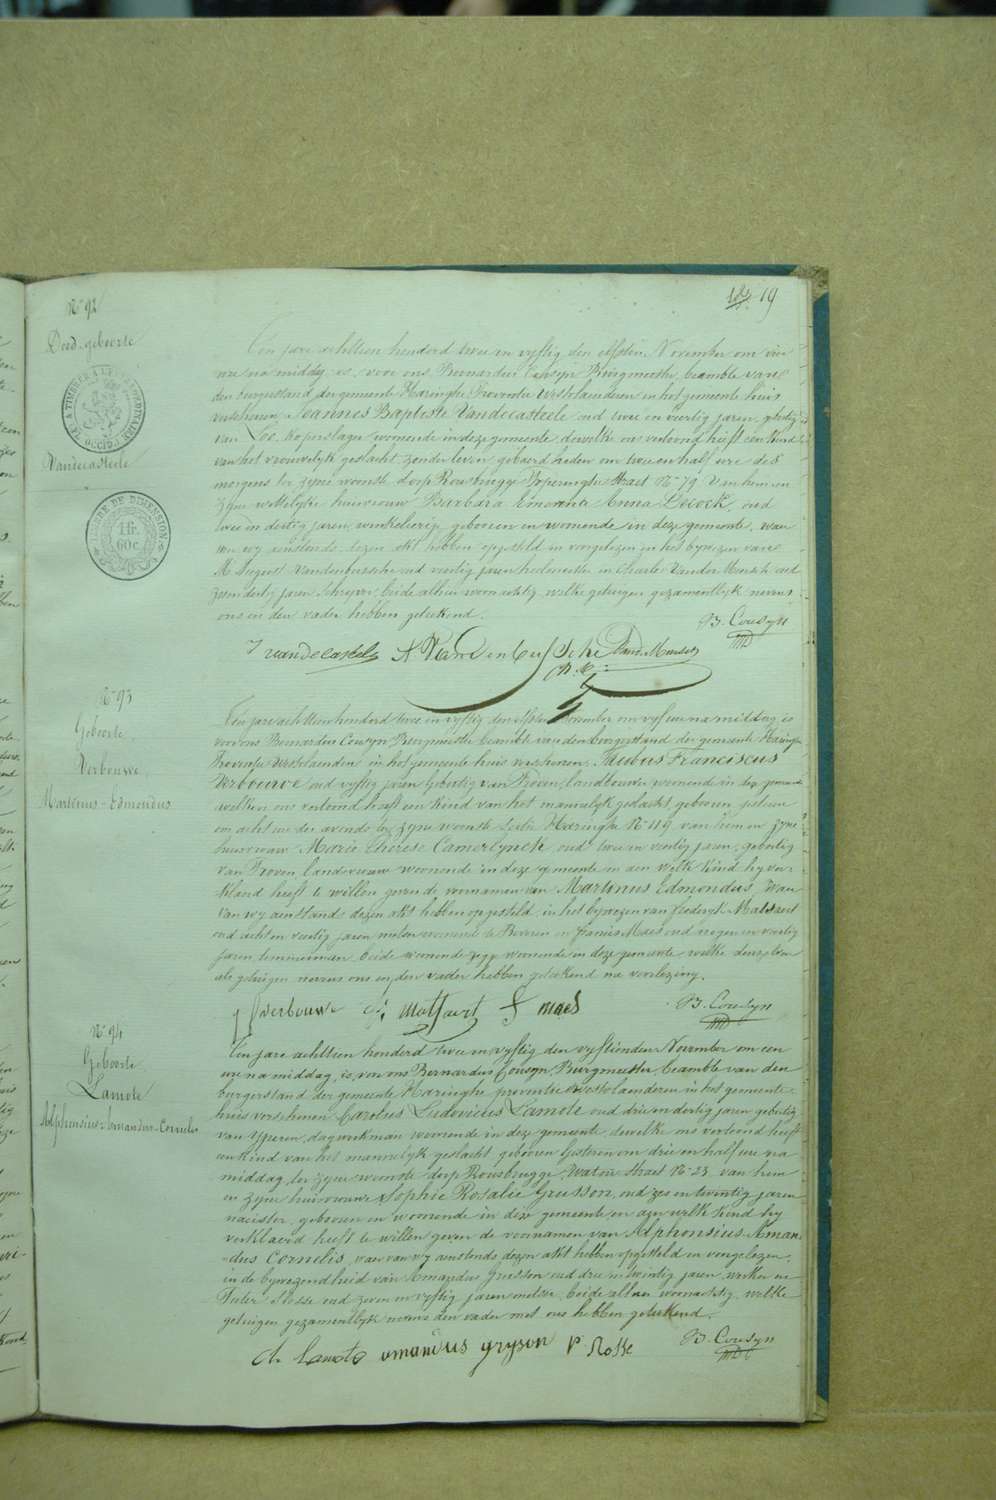 19
N° 92
Dood-geboorte
Vandecasteele
TIMBRE DE DIMENSION
1 fr.
60 c.
Een jare achttien honderd twee en vyftig den elfsten November om vier
ure na middag, is, voor ons Bernardus Cousyn Burgmeester, beambte van
den burgerstand der gemeente Haringhe Proventie Westvlaenderen in het gemeente huis
verschenen Joannes Baptiste Vandecasteele oud twee en viertig jaren, geboortig
van Loo, koperslager woonende in deze gemeente, dewelke ons vertoond heeft een kind
van het vrouwelyk geslacht, zonder leven gebaerd heden om twee en half ure des
morgens ter zyne woonste dorp Rousbrugge Poperinghe straet N° 79 van hem en
zyne wettelyke huisvrouw Barbara Emerenta Anna Decock, oud
twee en dertig jaren, winkelierige, geboren en woonende in deze gemeente, waer
van wy aenstonds dezen akt hebben opgesteld en voorgelezen in het bywezen van
M. August Vandenbussche oud veertig jaren heelmeester en Charles Vander Mensch oud
jaren schryver, beide alhier woonachtig, welke getuigen gezamentlyk nevens
ons en den vader hebben geteekend.
B. Cousyn
J vandecasteele A Vandenbussche Vand. Mensch
N° 93
Geboorte
Verbouwe
Martinus-Edmondus
Een jare achttien honderd twee en vyftig den elfsten November om vyf ure na middag, is
voor ons Bernardus Cousyn, Burgmeester, beambte van den burgerstand der gemeente Haringhe
Proventie Westvlaenderen in het gemeente huis verschenen Jacobus Franciscus
Verbouwe oud vyftig jaren geboortig van Proven, landbouwer woonende in deze gemeente
welken ons vertoond heeft een kind van het mannelyk geslacht, geboren gisteren
om acht ure des avonds ter zyne woonste sectie Haringhe N° 119 van hem en zyne
huisvrouw Marie Therese Camerlynck oud twee en veertig jaren, geboortig
van Proven, landvrouw woonende in deze gemeente en aen welk kind hy ver-
klaerd heeft te willen geven de voornamen van Martinus Edmondus, waer
van wy aenstonds dezen akt hebben opgesteld, in het bywezen van Frederyk Matsaert
oud acht en veertig jaren, woonende te Beveren en Francis Maes oud negen en veertig
jaren, timmerman, woonende in deze gemeente welke
als getuigen nevens ons en den vader hebben geteekend na voorlezing.
j f verbouwe f. matsaert F maes
B. Cousyn
N° 94
Geboorte
Lamote
Alphonsius-Amandus-Cornelis
Een jare achttien honderd twee en vyftig den vyftienden November om een
ure na middag, is, voor ons Bernardus Cousyn, Burgmeester, beambte van den
burgerstand der gemeente Haringhe proventie Westvlaenderen in het gemeente-
huis verschenen Carolus Ludovicus Lamote oud drie en dertig jaren geboortig
van Yperen, dagwerkman woonende in deze gemeente, dewelke ons vertoond heeft
een kind van het mannelyk geslacht geboren gisteren om drie en half ure na
middag, ter zyne woonste dorp Rousbrugge, Watou straet N° 23, van hem
en zyne huisvrouw Sophie Rosalie Grusson, oud zes en twintig jaren
naeister, geboren en woonende in deze gemeente en aen welk kind hy
verklaerd heeft te willen geven de voornamen van Alphonsius Aman-
-dus Cornelis, waer van wy aenstonds dezen akt hebben opgesteld en voorgelezen,
in de bywezendheid van Amandus Grusson oud drie en twintig jaren, werker en
Pieter Rosse oud zeven en vyftig jaren metser, beide alhier woonachtig, welke
getuigen gezamentlyk nevens den vader met ons hebben geteekend.
ch. Lamote amandus gryson P Rosse
B. Cousyn